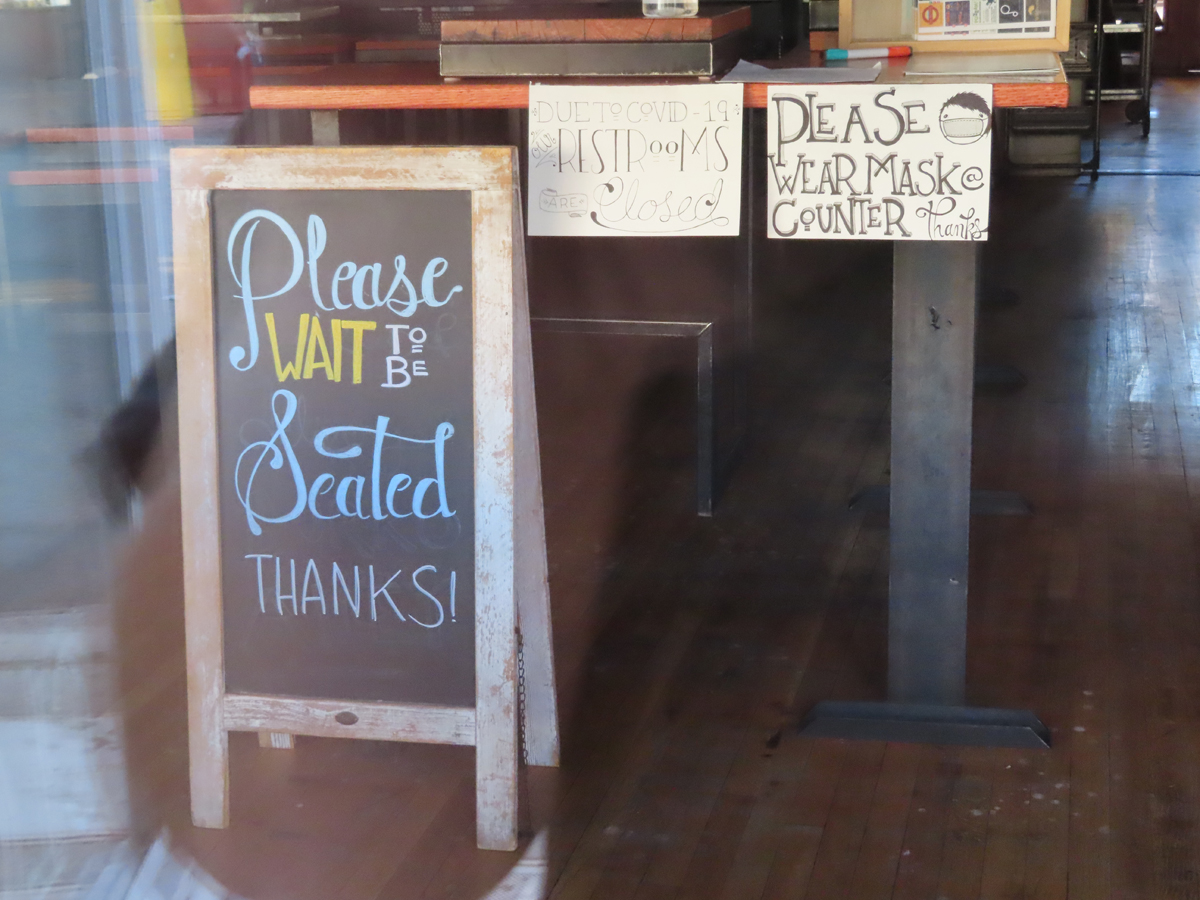 Please
WAIT TO BE
Seated
THANKS!
DUE TO COVID-19
RESTROOMS
ARE Closed
PLEASE
WEAR MASK @
COUNTER Thanks